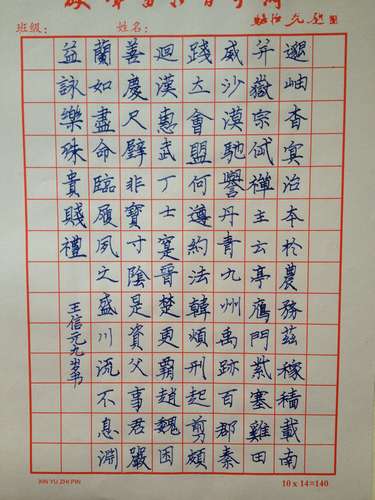 班級：
姓名：
邈岫杳冥治本於農務茲稼穡載南
并嶽宗禪主云亭鴈門紫塞雞田
威沙漠馳譽丹青九州禹跡百郡秦
踐土會盟何遵約法韓煩刑起翦頗
迴漢惠武丁士寔晉楚更霸趙魏困
善慶尺璧非寶寸陰是資父事君嚴
蘭如盡命臨履夙文盛川流不息淵
益詠樂殊貴賤禮
王信元九岁书
XIN YU ZHI PIN
10 x 14=140